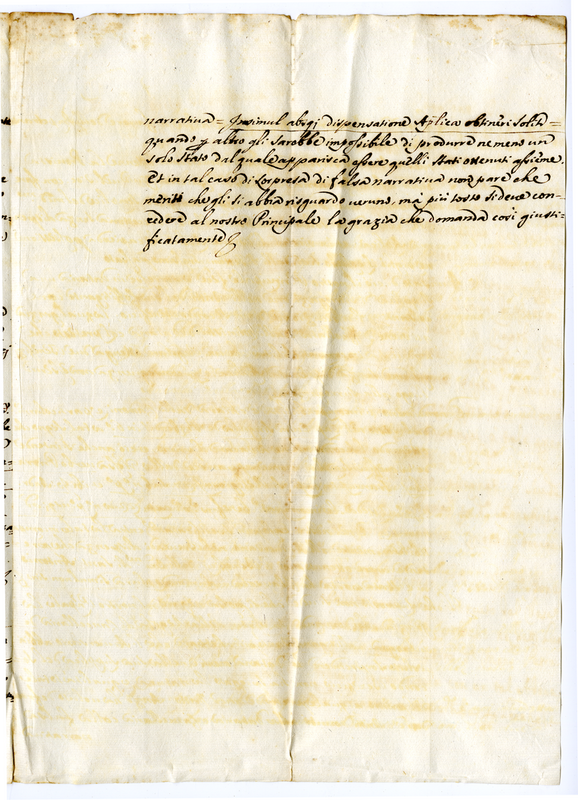 narrativa = Insimul absq; dispensatione Aplica obtineri solit=
quando p altro gli sarebbe impossibile di produrre nemeno un
solo stato dal quale apparisca essere quelli Stati ottenuti assieme.
Et in tal caso di sorpresa di falsa narrativa non pare che
meriti che gli si abbia risguardo veruno, mà più tosto si deve con=
cedere al nostro Principale la grazia che domanda così giusti=
ficatamente